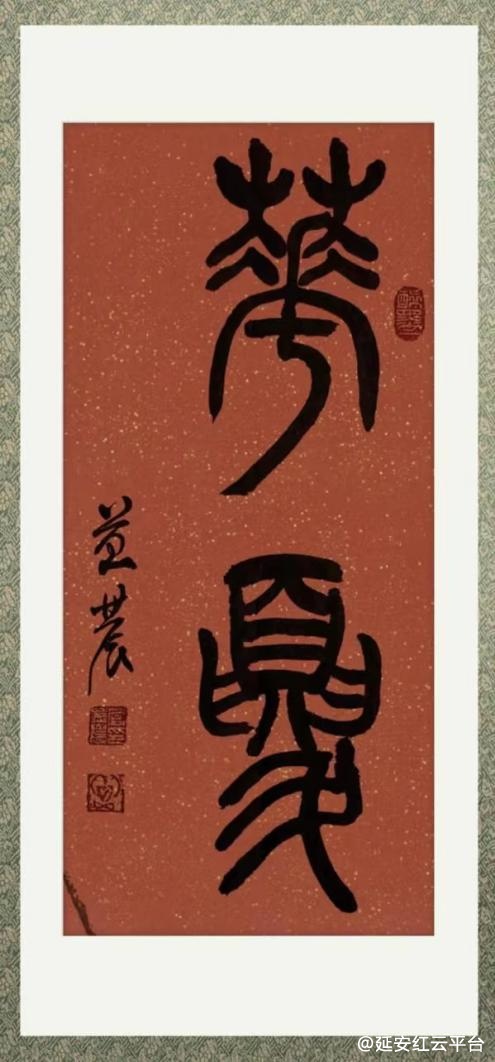 華夏
益農
@延安红云平台